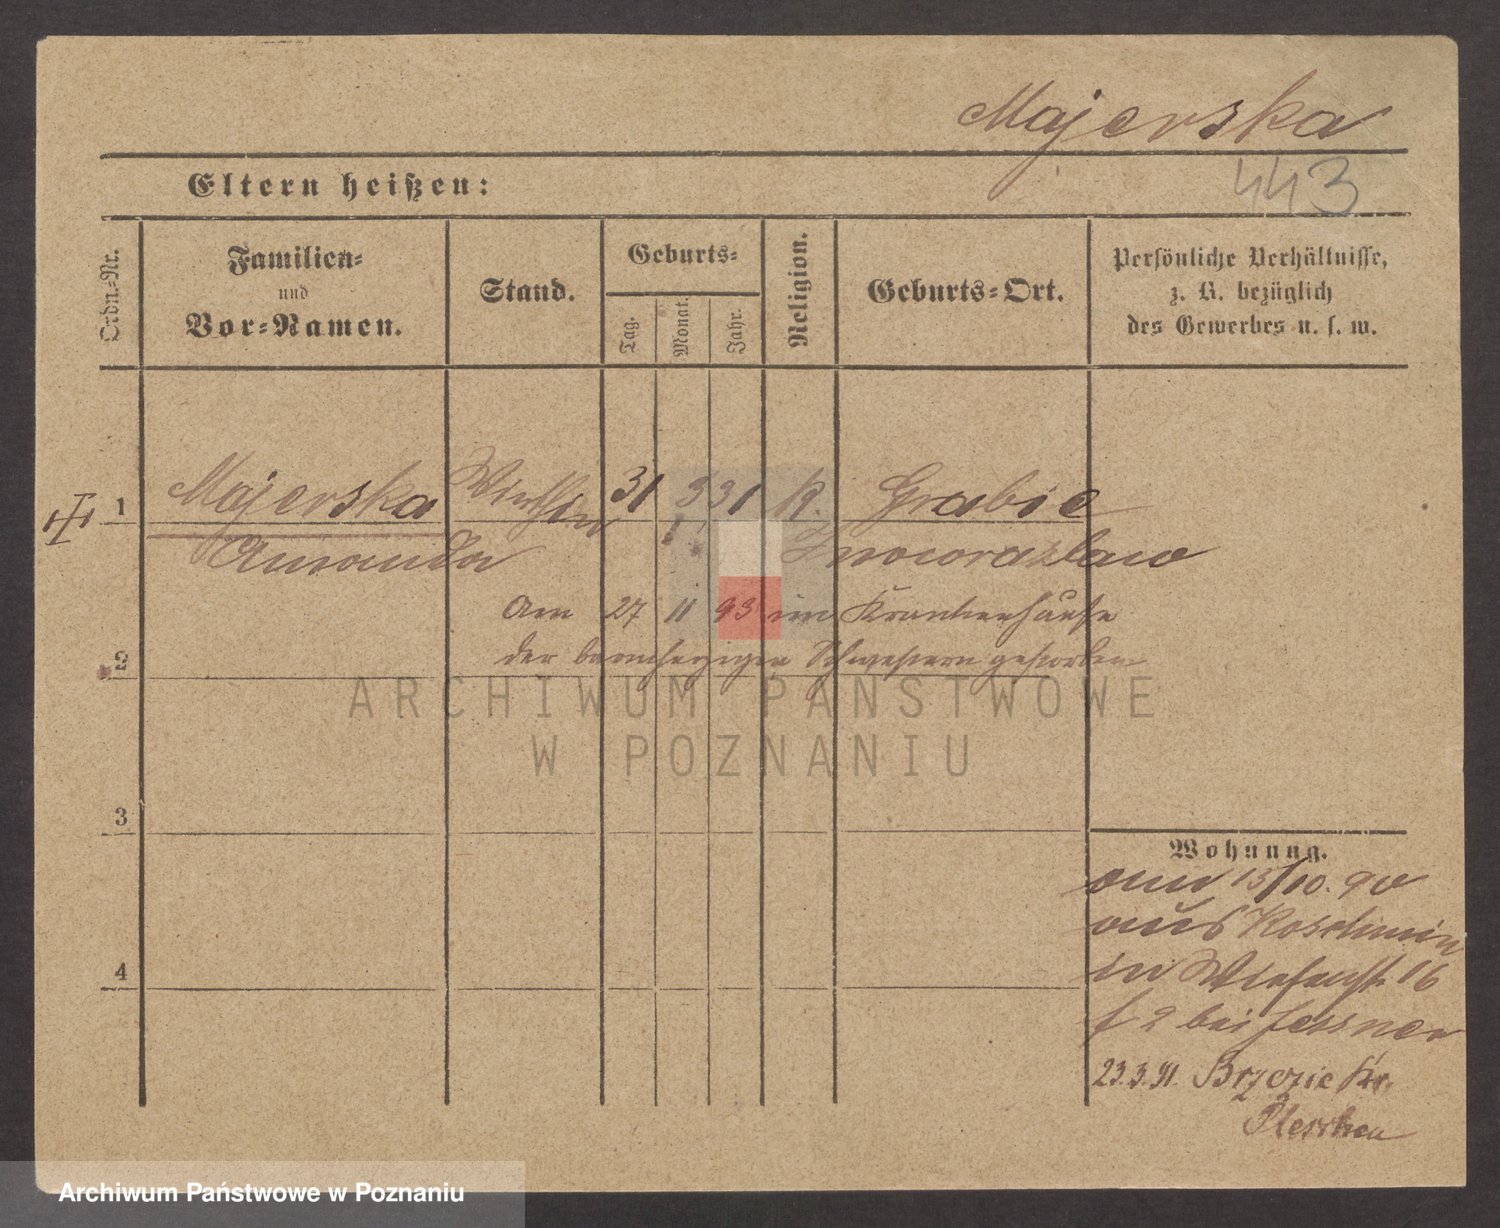 Majerska
443
Eltern heißen:
Ordn.-Nr.
Familien-
und
Vor-Namen.
Stand.
Geburts-
Tag.
Monat.
Jahr.
Religion.
Geburts-Ort.
Persönliche Verhältnisse,
z. B. bezüglich
des Gewerbes u. s. w.
1 Majerska Wirthin 31 K. Grabie
Amanda Inowrazlaw
Am 27 11 93 im Krankenhause
der barmherzigen Schwestern gestorben
2
ARCHIWUM PAŃSTWOWE
W POZNANIU
3
4
Wohnung.
am 13/10. 90
aus Koschmin
in 16
bei
23.3.91. Brzezie Kr.
Pleschen
Archiwum Państwowe w Poznaniu